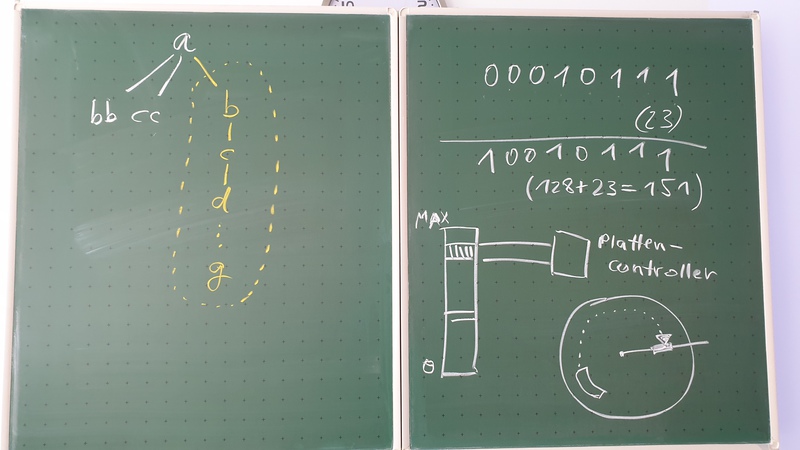 a
bb cc
b
c
d
g
00010111
(23)
10010111
(128+23=151)
MAX
Platten-
controller
0